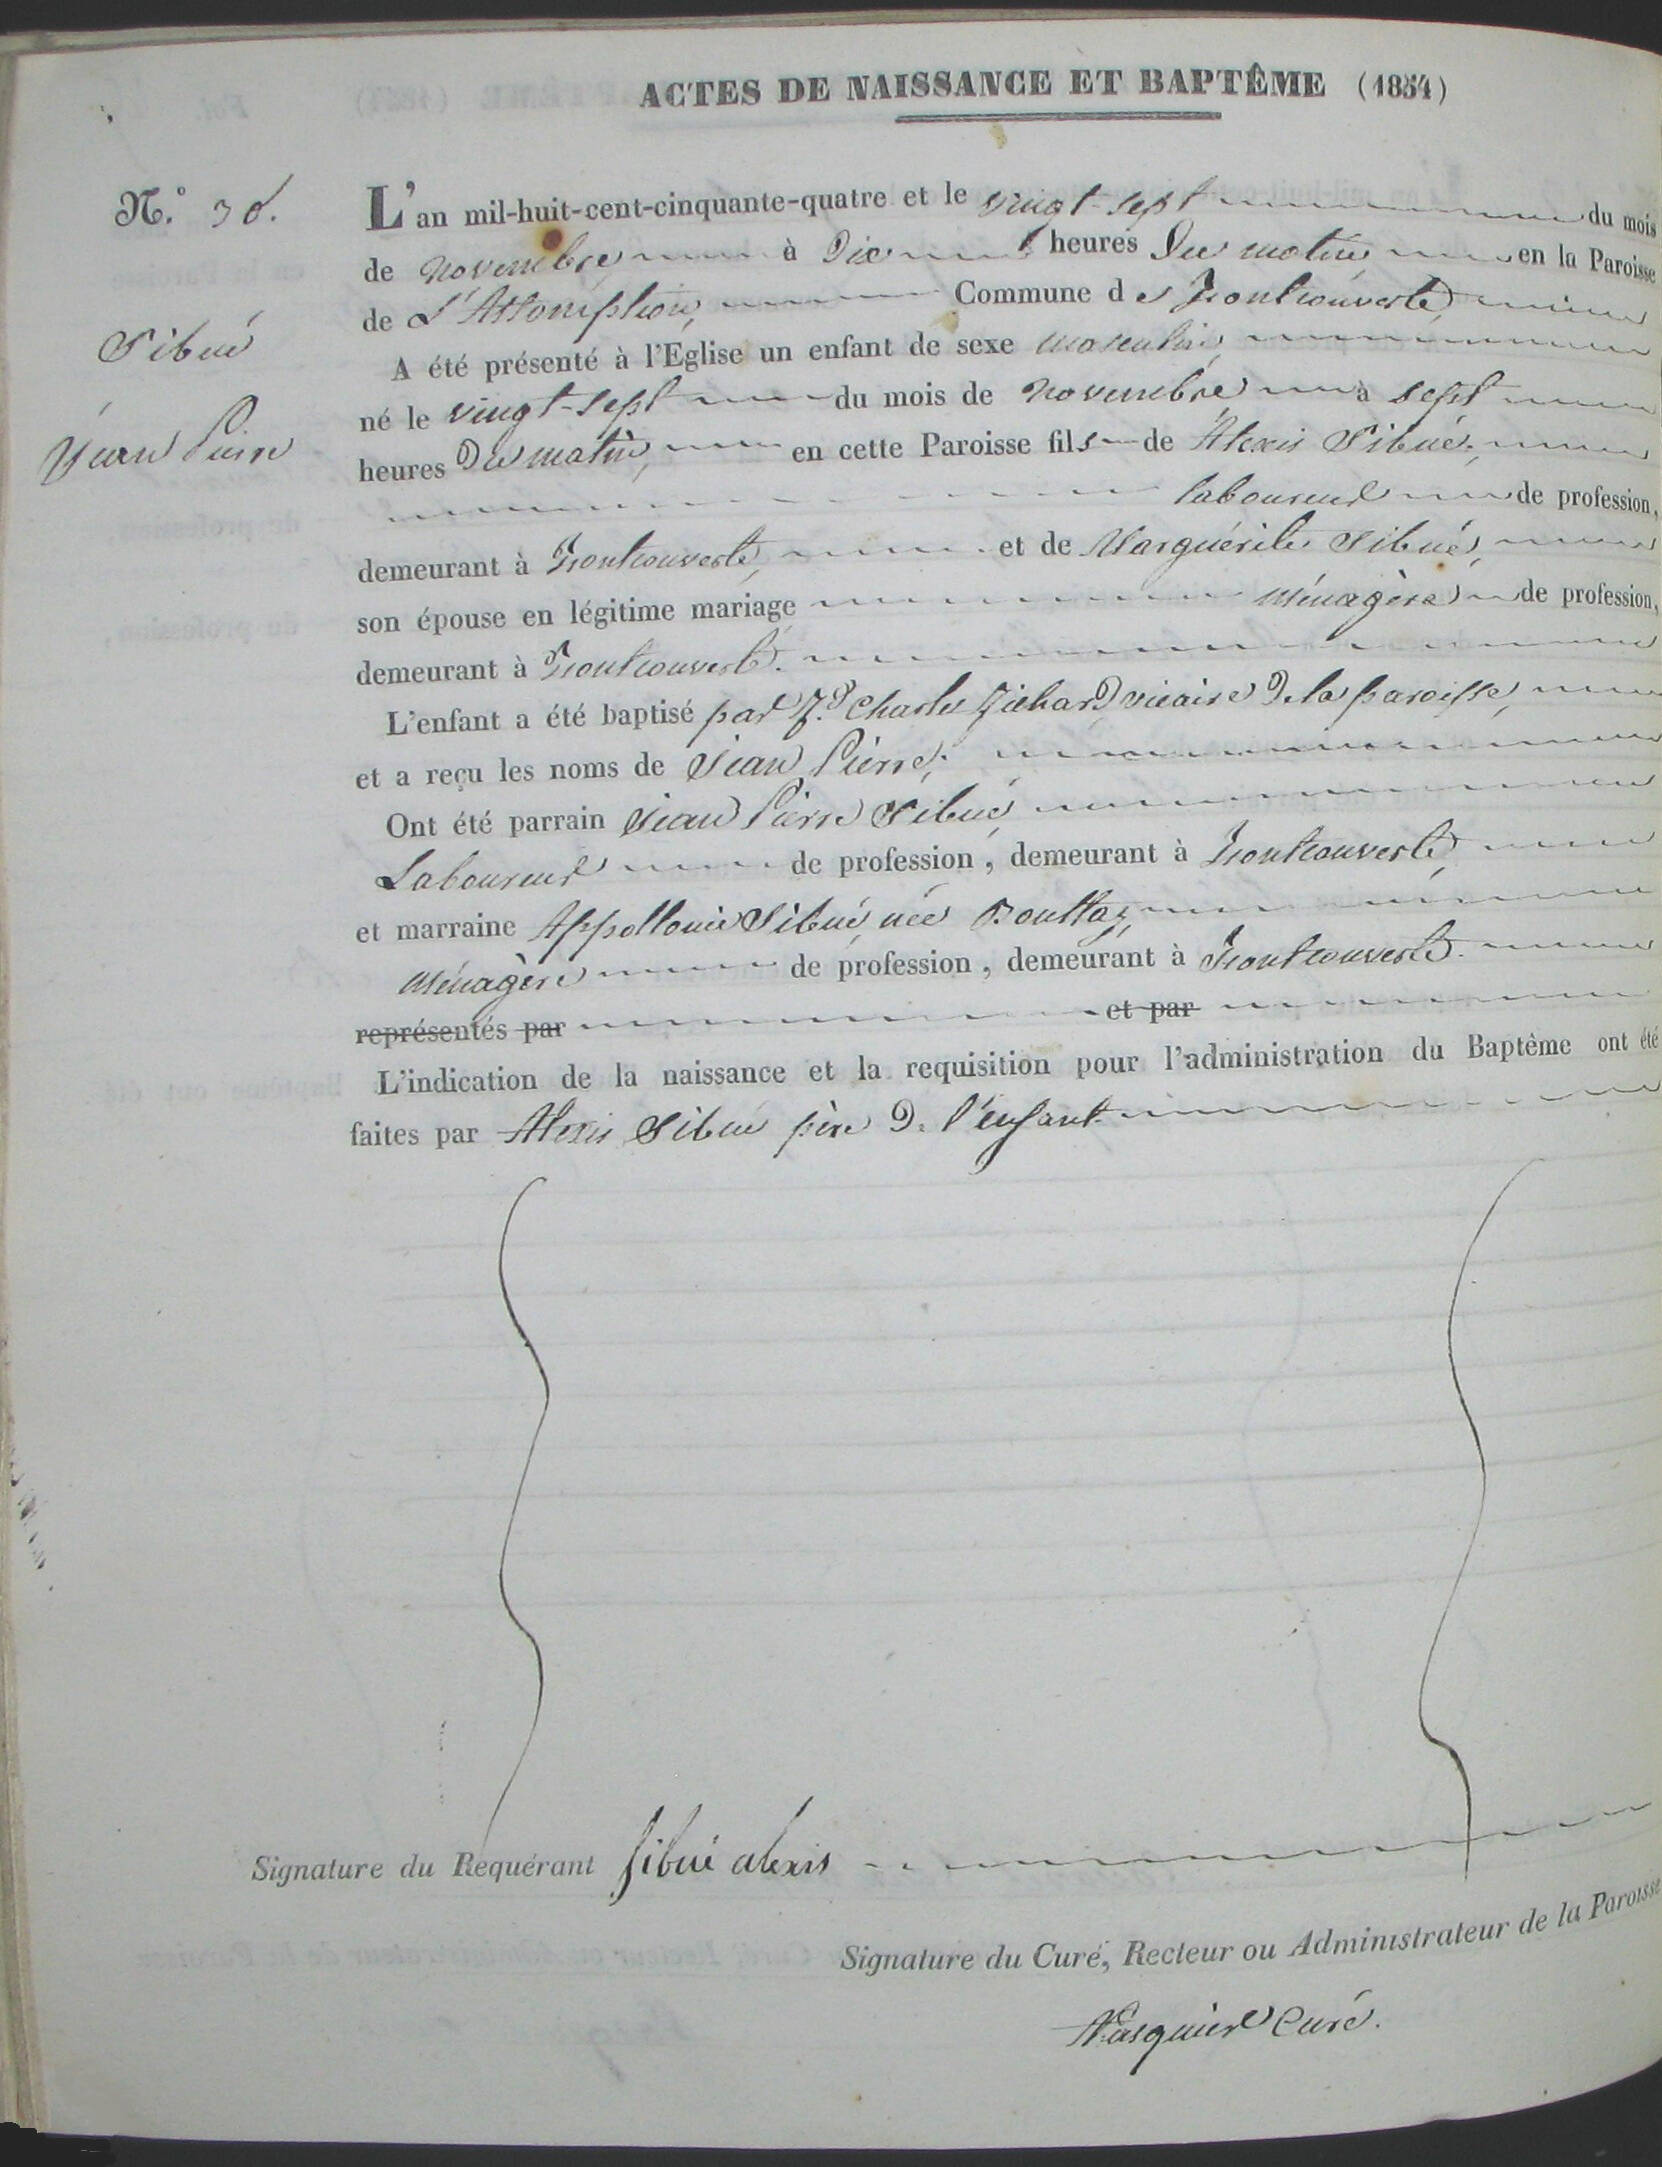 ACTES DE NAISSANCE ET BAPTÊME (1854)
N.º
L'an mil-huit-cent-cinquante-quatre et le vingt-sept du mois
de novembre à Dix heures Du matin en la Paroisse
de L'Assomption, Commune de Montrouvert
Sibué
A été présenté à l'Eglise un enfant de sexe masculin,
né le vingt-sept du mois de novembre à sept
Jean Pierre
heures Du matin, en cette Paroisse fils de Alexis Sibué,
laboureur de profession,
demeurant à Montrouvert, et de Marguérite Sibué,
son épouse en légitime mariage ménagère de profession,
demeurant à Montrouvert.
L'enfant a été baptisé par Charles vicaire De la paroisse,
et a reçu les noms de Jean Pierre;
Ont été parrain Jean Pierre Sibué,
Laboureur de profession, demeurant à Montrouvert,
et marraine Appollonie Sibué, née
ménagère de profession, demeurant à Montrouvert.
représentés par et par
L'indication de la naissance et la requisition pour l'administration du Baptême ont été
faites par Alexis Sibué père De l'enfant.
Signature du Requérant sibué alexis
Signature du Curé, Recteur ou Administrateur de la Paroisse
Curé.